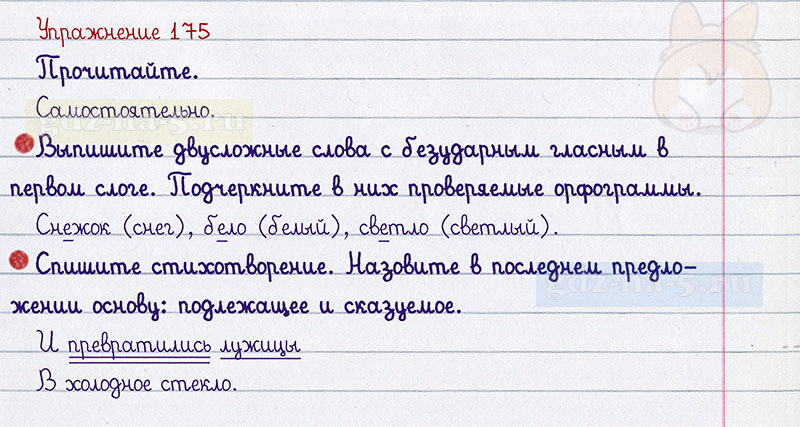 Упражнение 175
Прочитайте.
Самостоятельно.
Выпишите двусложные слова с безударным гласным в
первом слоге. Подчеркните в них проверяемые орфограммы.
Снежок (снег), бело (белый), светло (светлый).
Спишите стихотворение. Назовите в последнем предло-
жении основу: подлежащее и сказуемое.
И превратились лужицы
В холодное стекло.